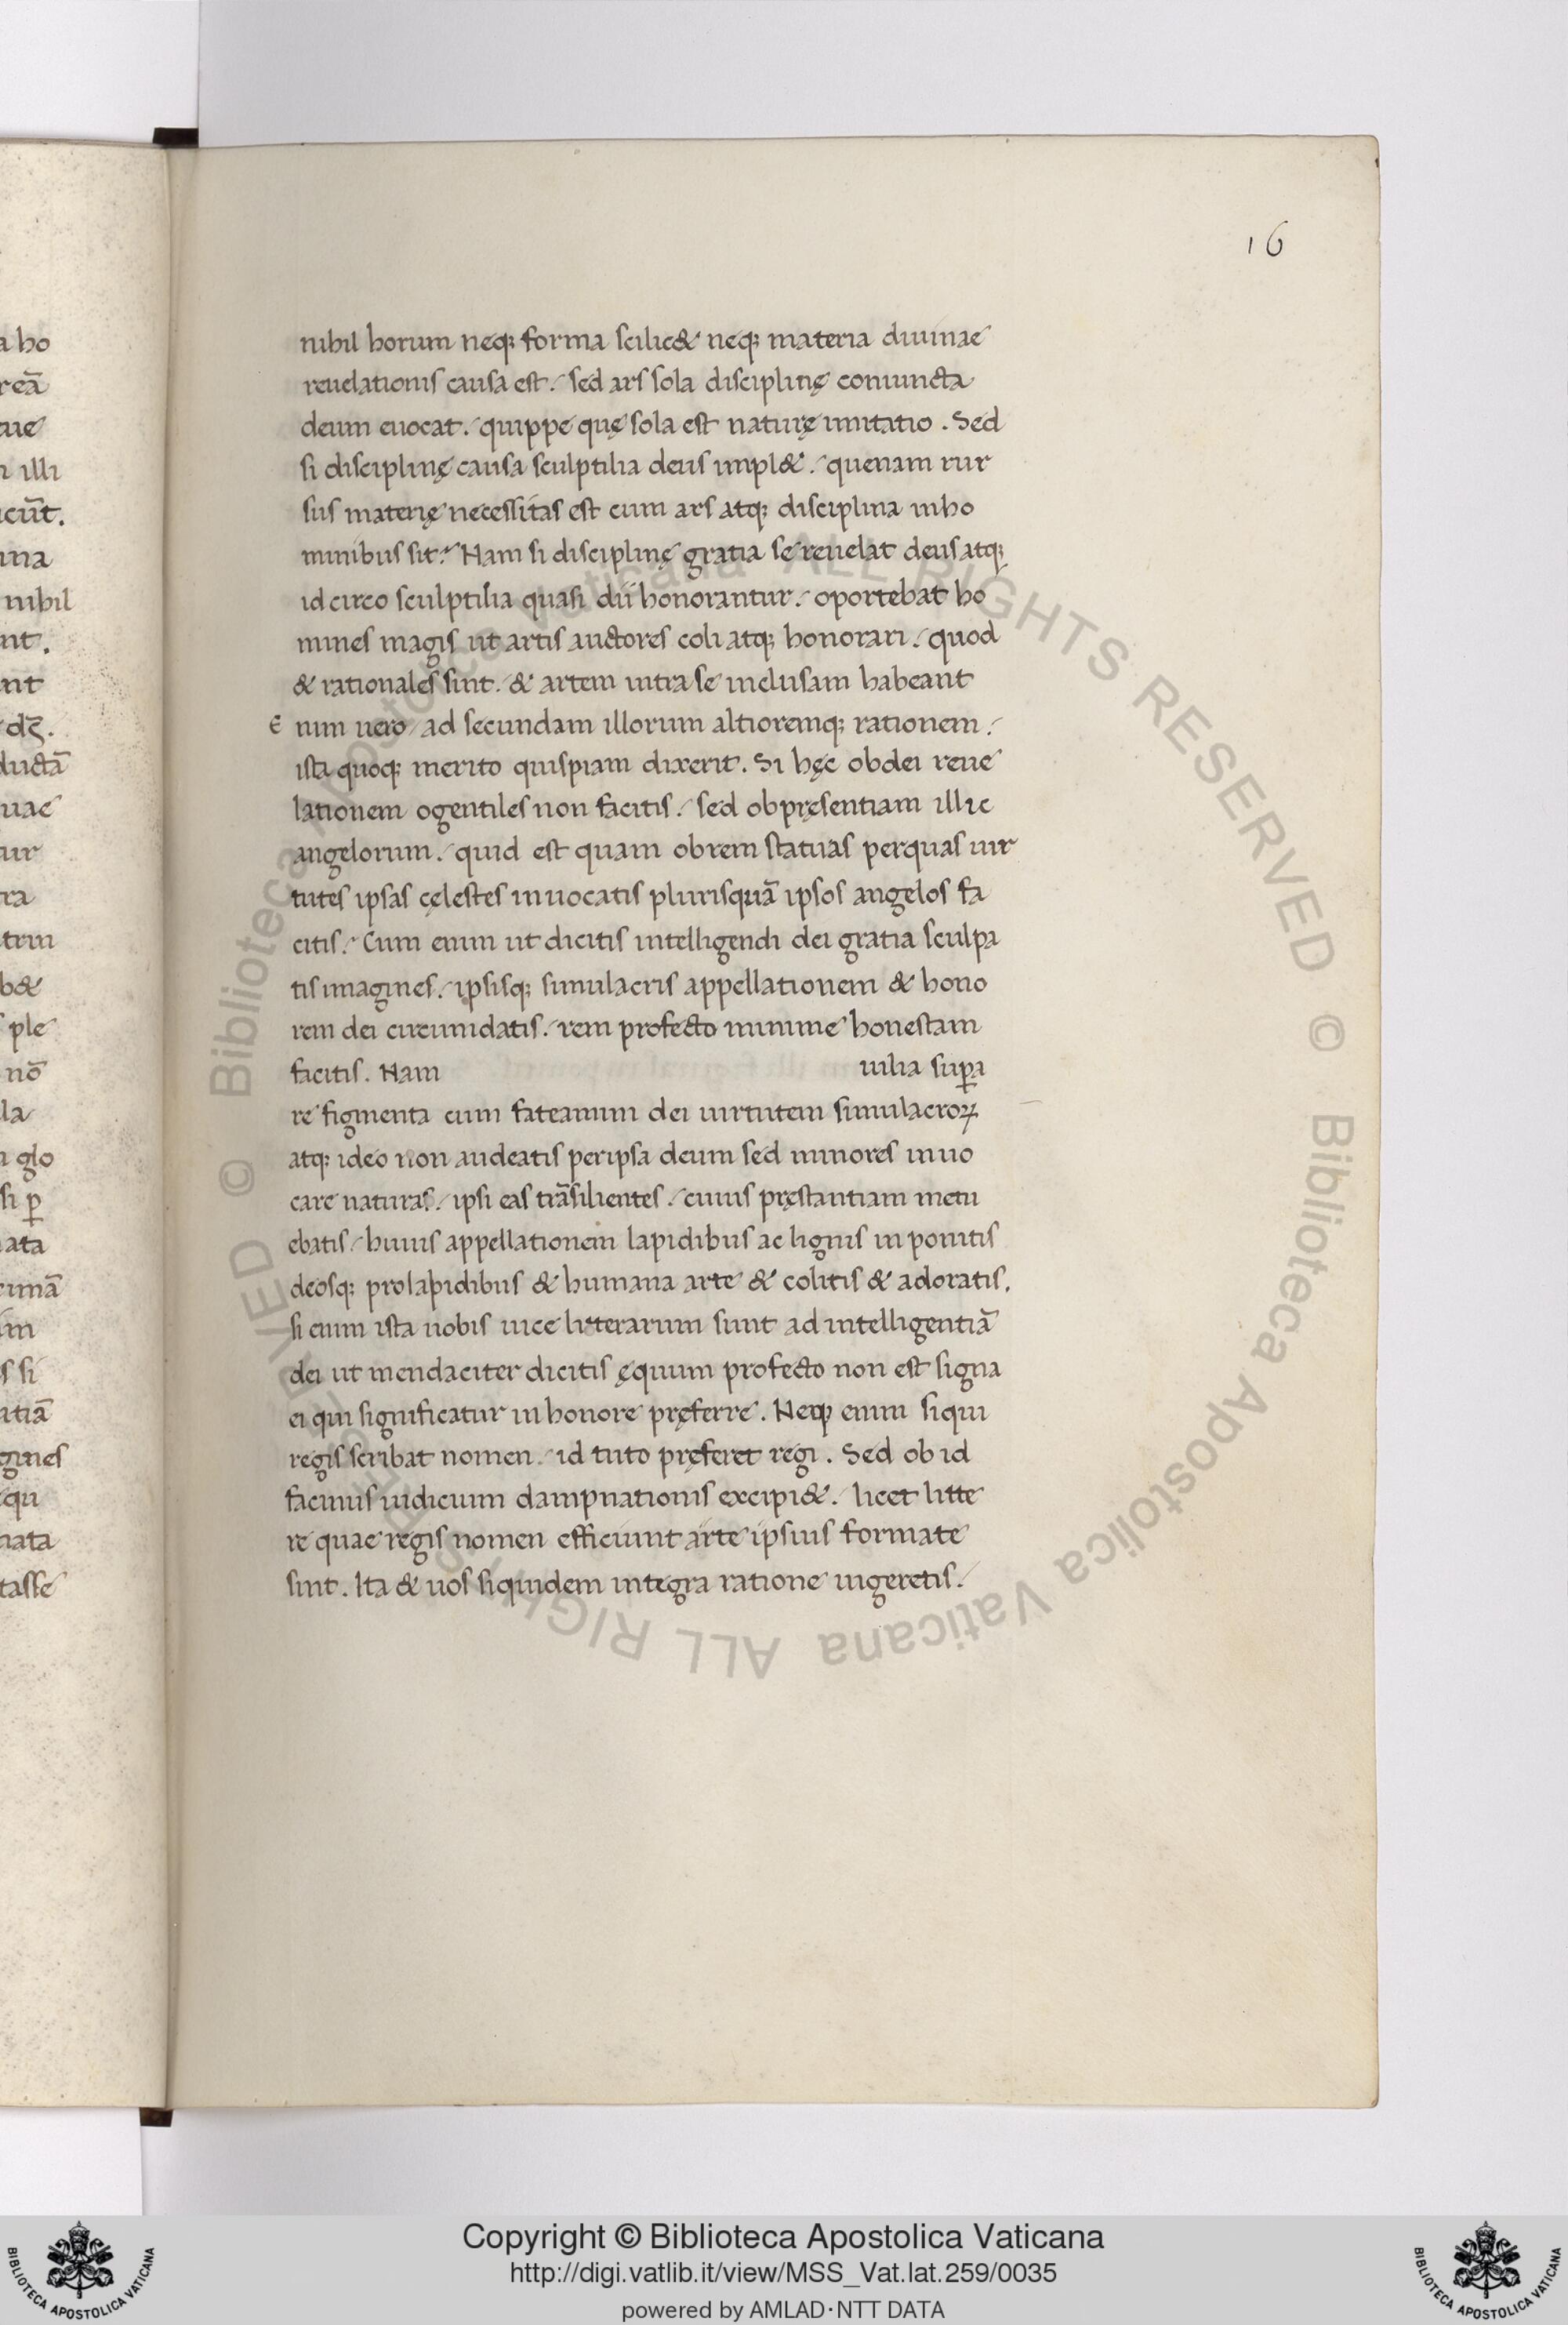 16
nihil horum neq; forma scilic& neq; materia diuinae
reuelationis causa est. sed ars sola disciplinę coniuncta
deum euocat. quippe quę sola est naturę imitatio. Sed
si disciplinę causa sculptilia deus impl&. quenam rur
sus materię necessitas est cum ars atq; disciplina inho
minibus sit? Nam si disciplinę gratia se reuelat deus atq;
id circo sculptilia quasi dii honorantur. oportebat ho
mines magis ut artis auctores coli atq; honorari. quod
& rationales sint. & artem intra se inclusam habeant
E nim uero ad secundam illorum altioremq; rationem.
ista quoq; merito quispiam dixerit. Si hęc obdei reue
lationem ogentiles non facitis. sed obpręsentiam illic
angelorum. quid est quam obrem statuas perquas uir
tutes ipsas cęlestes inuocatis plurisquā ipsos angelos fa
citis. Cum enim ut dicitis intelligendi dei gratia sculpa
tis imagines. ipsisq; simulacris appellationem & hono
rem dei circumdatis. rem profecto minime honestam
facitis. Nam uilia supꝑa
re figmenta cum fateamini dei uirtutem simulacroꝝ
atq; ideo non audeatis peripsa deum sed minores inuo
care naturas. ipsi eas trāsilientes. cuius pręstantiam metu
ebatis. huius appellationem lapidibus ac lignis in ponitis
deosq; prolapidibus & humana arte & colitis & adoratis.
si enim ista nobis uice litterarum sunt ad intelligentiā
dei ut mendaciter dicitis ęquum profecto non est signa
ei qui significatur in honore pręferre. Neq; enim siqui
regis scribat nomen. id tuto pręferet regi. Sed ob id
facinus iudicium dampnationis excipi&. licet litte
re quae regis nomen efficiunt arte ipsius formate
sint. Ita & uos siquidem integra ratione uigeretis.
a ho
reā
illi
nihil
nt.
nt
dꝫ.
ductā
uae
ur
ra
b&
ple
nō
la
glo
si ꝑ
ata
imā
s si
gines
qu
nata
tasse
© Biblioteca Apostolica Vaticana ALL RIGHTS RESERVED © Biblioteca Apostolica Vaticana ALL RIGHTS RESERVED
Copyright © Biblioteca Apostolica Vaticana
http://digi.vatlib.it/view/MSS_Vat.lat.259/0035
powered by AMLAD·NTT DATA
BIBLIOTECA APOSTOLICA VATICANA
BIBLIOTECA APOSTOLICA VATICANA